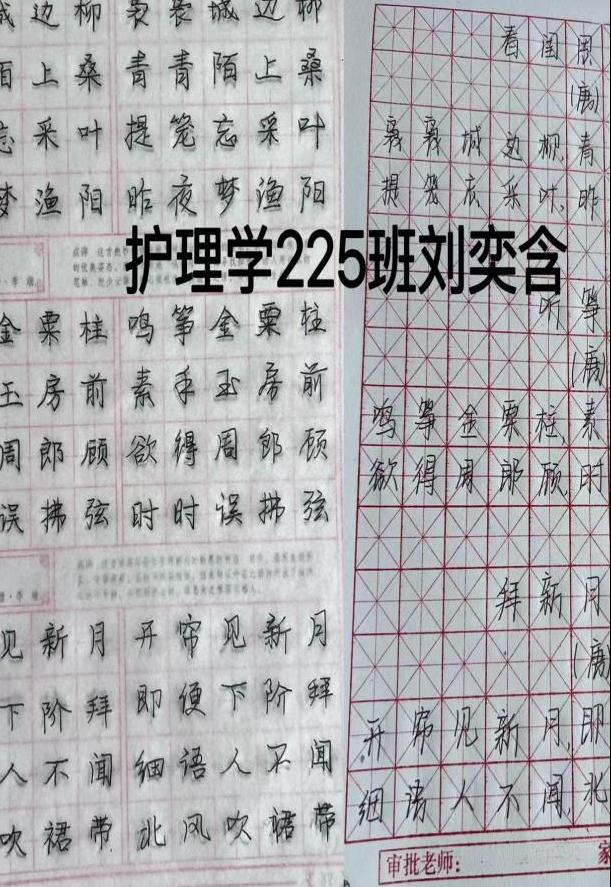 城边柳 袅袅城边柳
陌上桑 青青陌上桑
忘采叶 提笼忘采叶
梦渔阳 昨夜梦渔阳
金粟柱 鸣筝金粟柱
玉房前 素手玉房前
周郎顾 欲得周郎顾
误拂弦 时时误拂弦
见新月 开帘见新月
下阶拜 即便下阶拜
人不闻 细语人不闻
吹裙带 北风吹裙带
护理学225班刘奕含
春闺思
(唐)
袅袅城边柳,青
提笼忘采叶,昨
听筝
(唐)
鸣筝金粟柱,素
欲得周郎顾,时
拜新月
(唐)
开帘见新月,即
细语人不闻,北
审批老师: 家